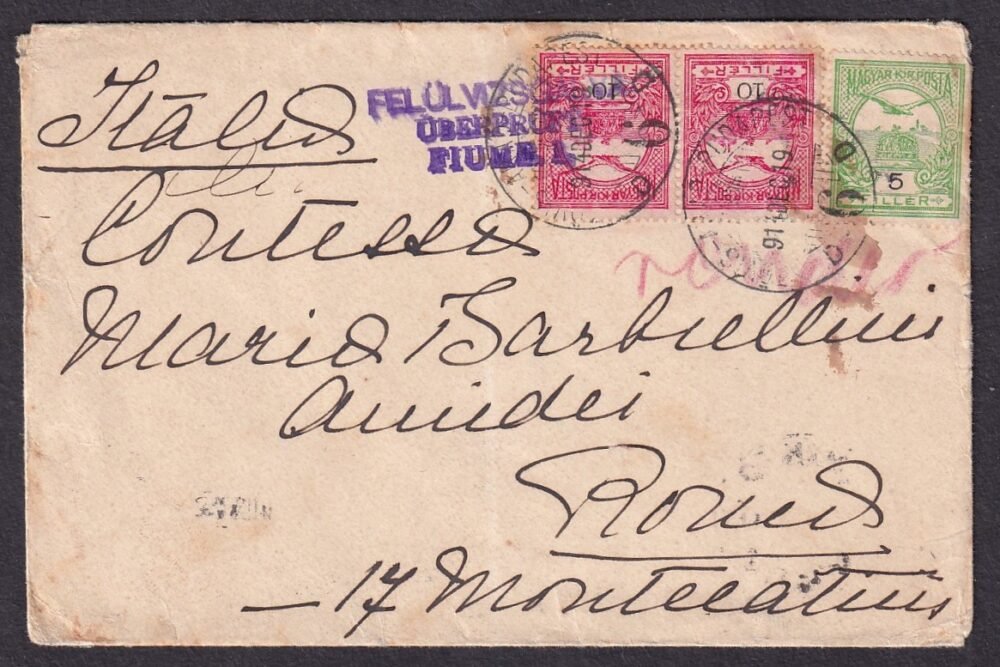 FELÜLVIZSGÁLVA
ÜBERPRÜFT
FIUME 1.
FILLER 10
FILLER 10
MAGYAR KIR. POSTA
5
FILLER
Italia
Contessa
Maria Barbiellini
Amidei
Roma
- 17 Montecatini